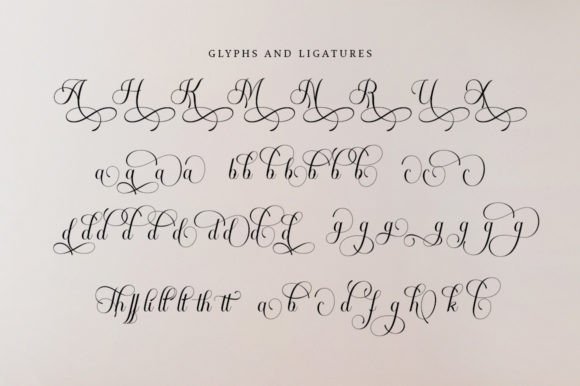 GLYPHS AND LIGATURES
A H K M N R U X
a a a a b b b b b b b c c c
d d d d d d d d d d d g g g g g g g g
Th ff li ll lt th tt a b c d f g h k l